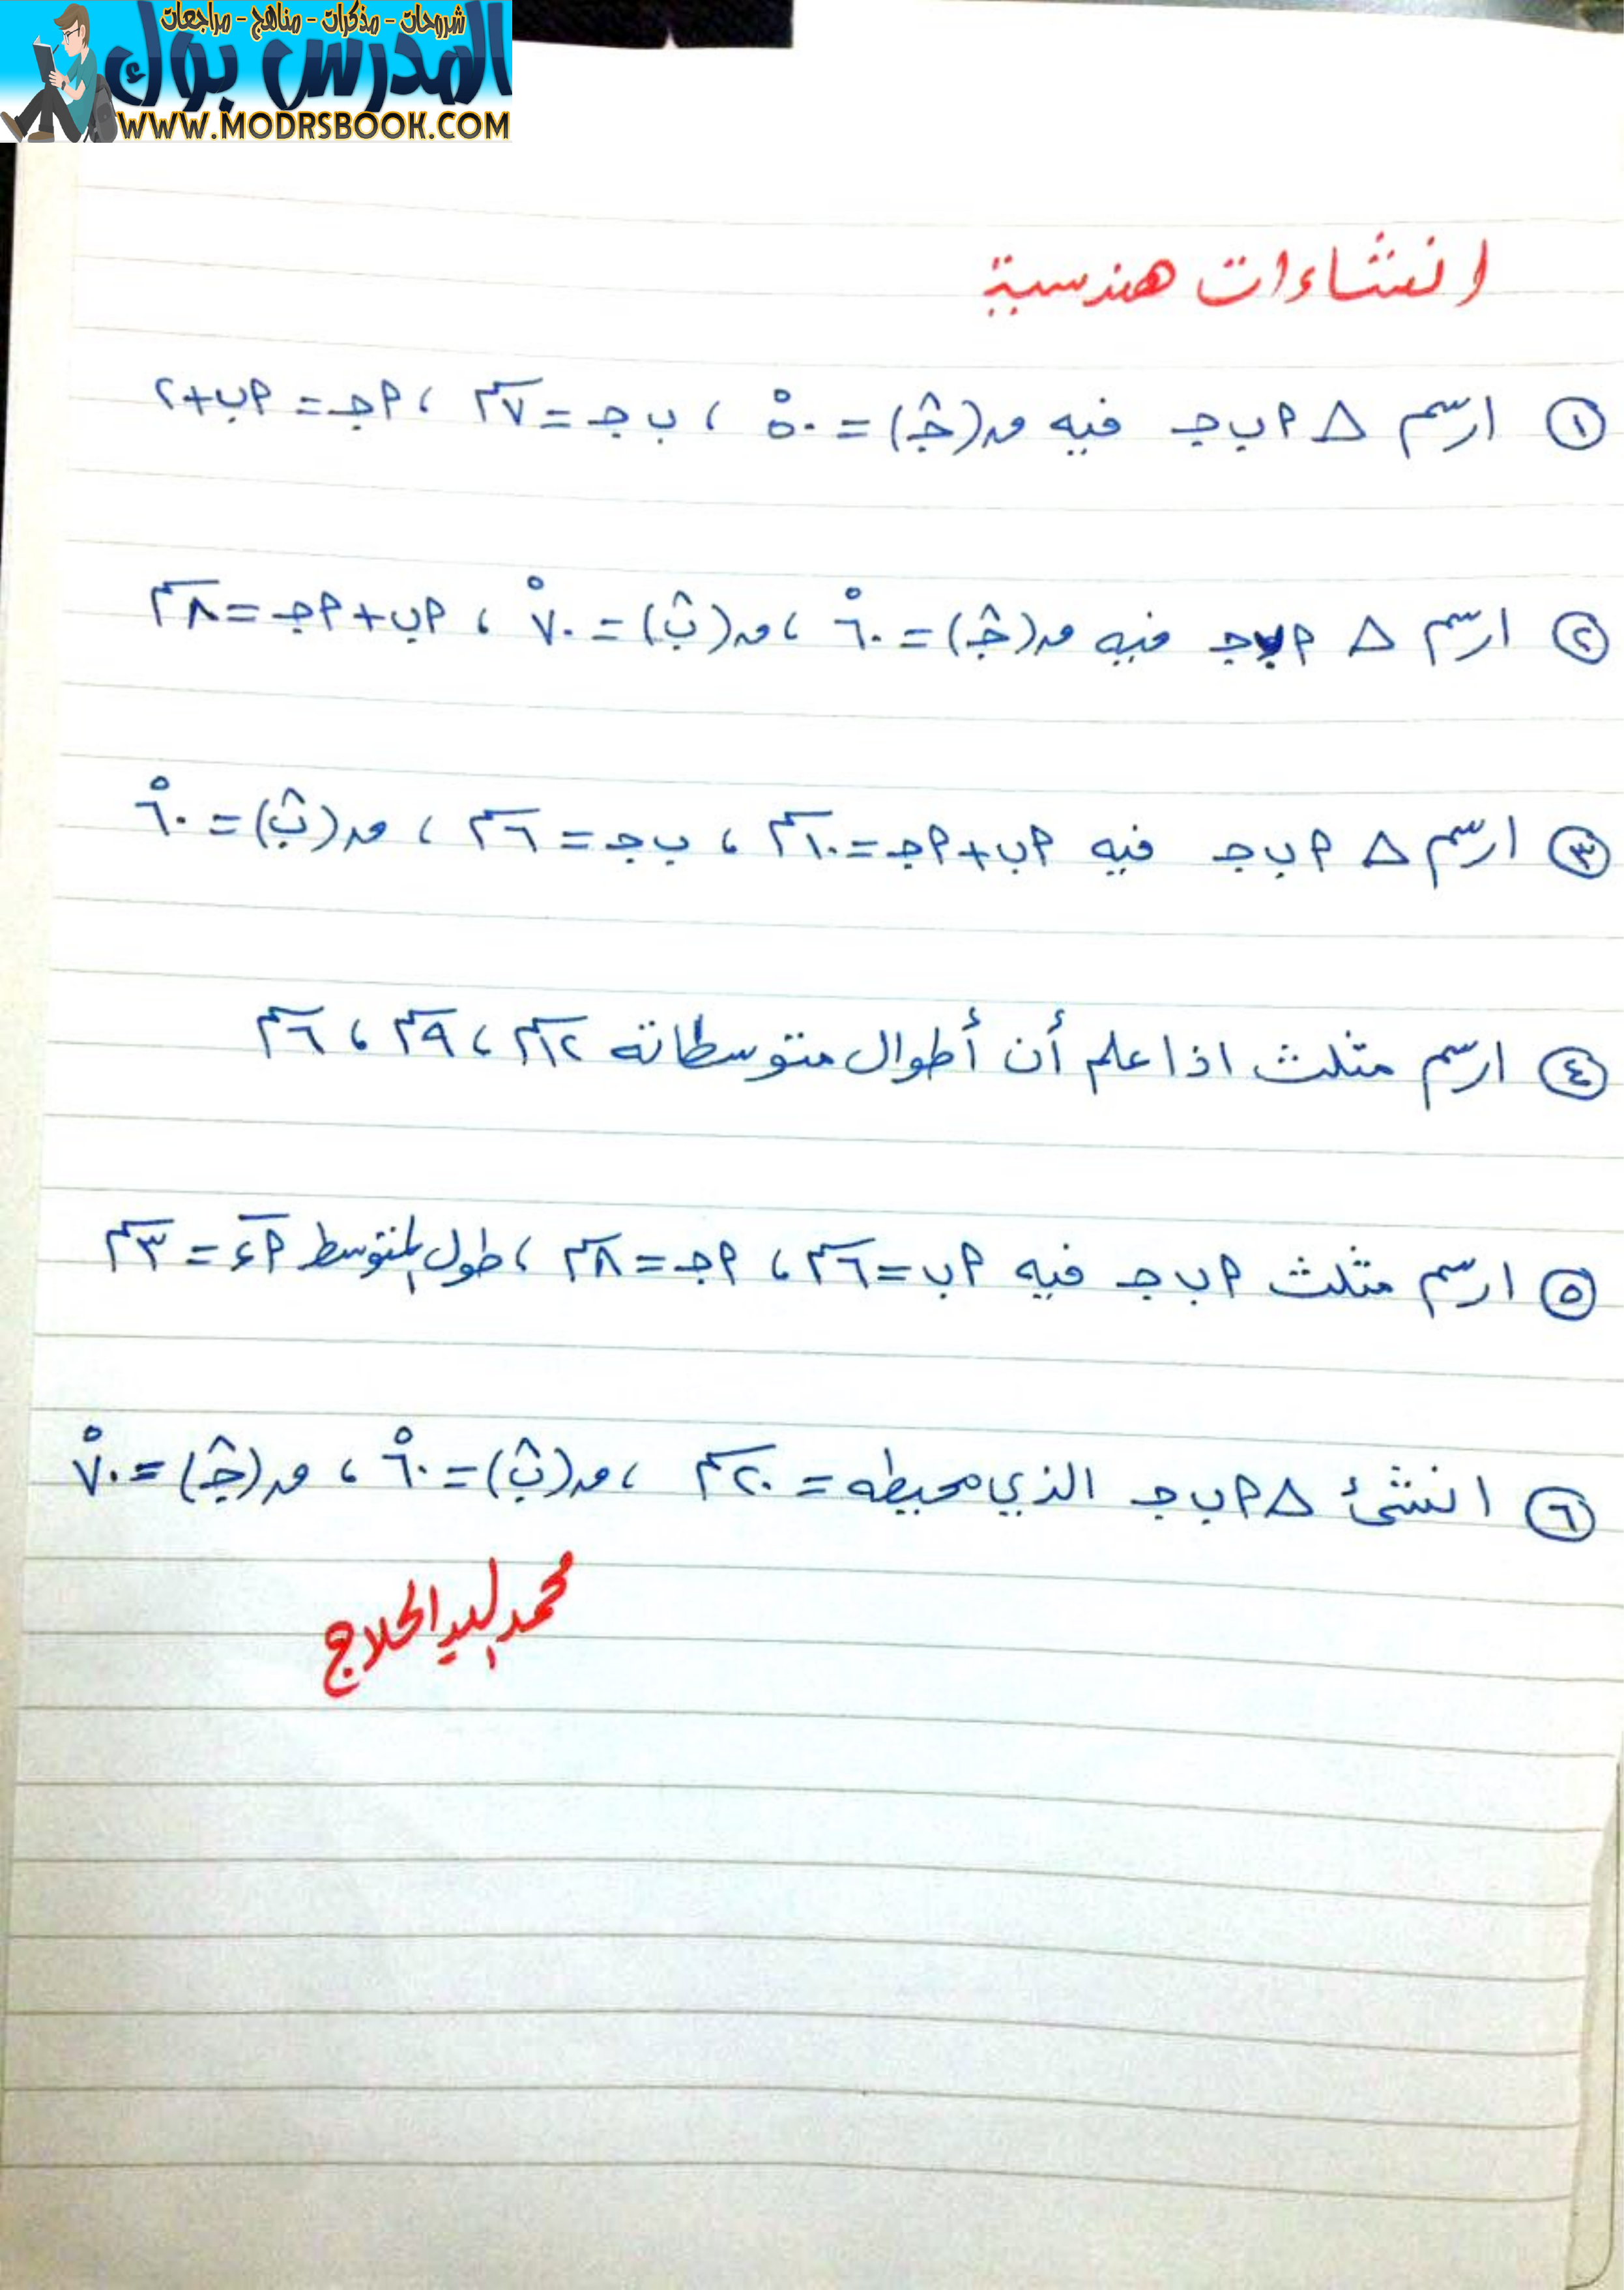 شروحات - مذكرات - مناهج - مراجعات
المدرس بوك
WWW.MODRSBOOK.COM
انشاءات هندسية
١ ارسم △ أ ب جـ فيه ق(جـ̂) = ٥٠° ، ب جـ = ٧ سم ، أ جـ = أ ب + ٢
٢ ارسم △ أ ب جـ فيه ق(جـ̂) = ٦٠° ، ق(ب̂) = ٧٠° ، أ ب + أ جـ = ٨ سم
٣ ارسم △ أ ب جـ فيه أ ب + أ جـ = ١٠ سم ، ب جـ = ٦ سم ، ق(ب̂) = ٦٠°
٤ ارسم مثلث اذا علم أن أطوال متوسطاته ١٢ سم ، ٩ سم ، ٦ سم
٥ ارسم مثلث أ ب جـ فيه أ ب = ٦ سم ، أ جـ = ٨ سم ، طول المتوسط أء = ٣ سم
٦ انشئ △ أ ب جـ الذي محيطه = ٢٠ سم ، ق(ب̂) = ٦٠° ، ق(جـ̂) = ٧٠°
محمد السيد الحلاج